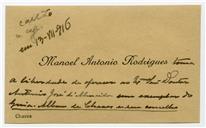 cartão
em 13-VII-916
Manoel Antonio Rodrigues toma
a liberdade de oferecer ao Exmo Snr Doutor
Antonio José d'Almeida um exemplar do
Guia-Album de Chaves e seu concelho
Chaves